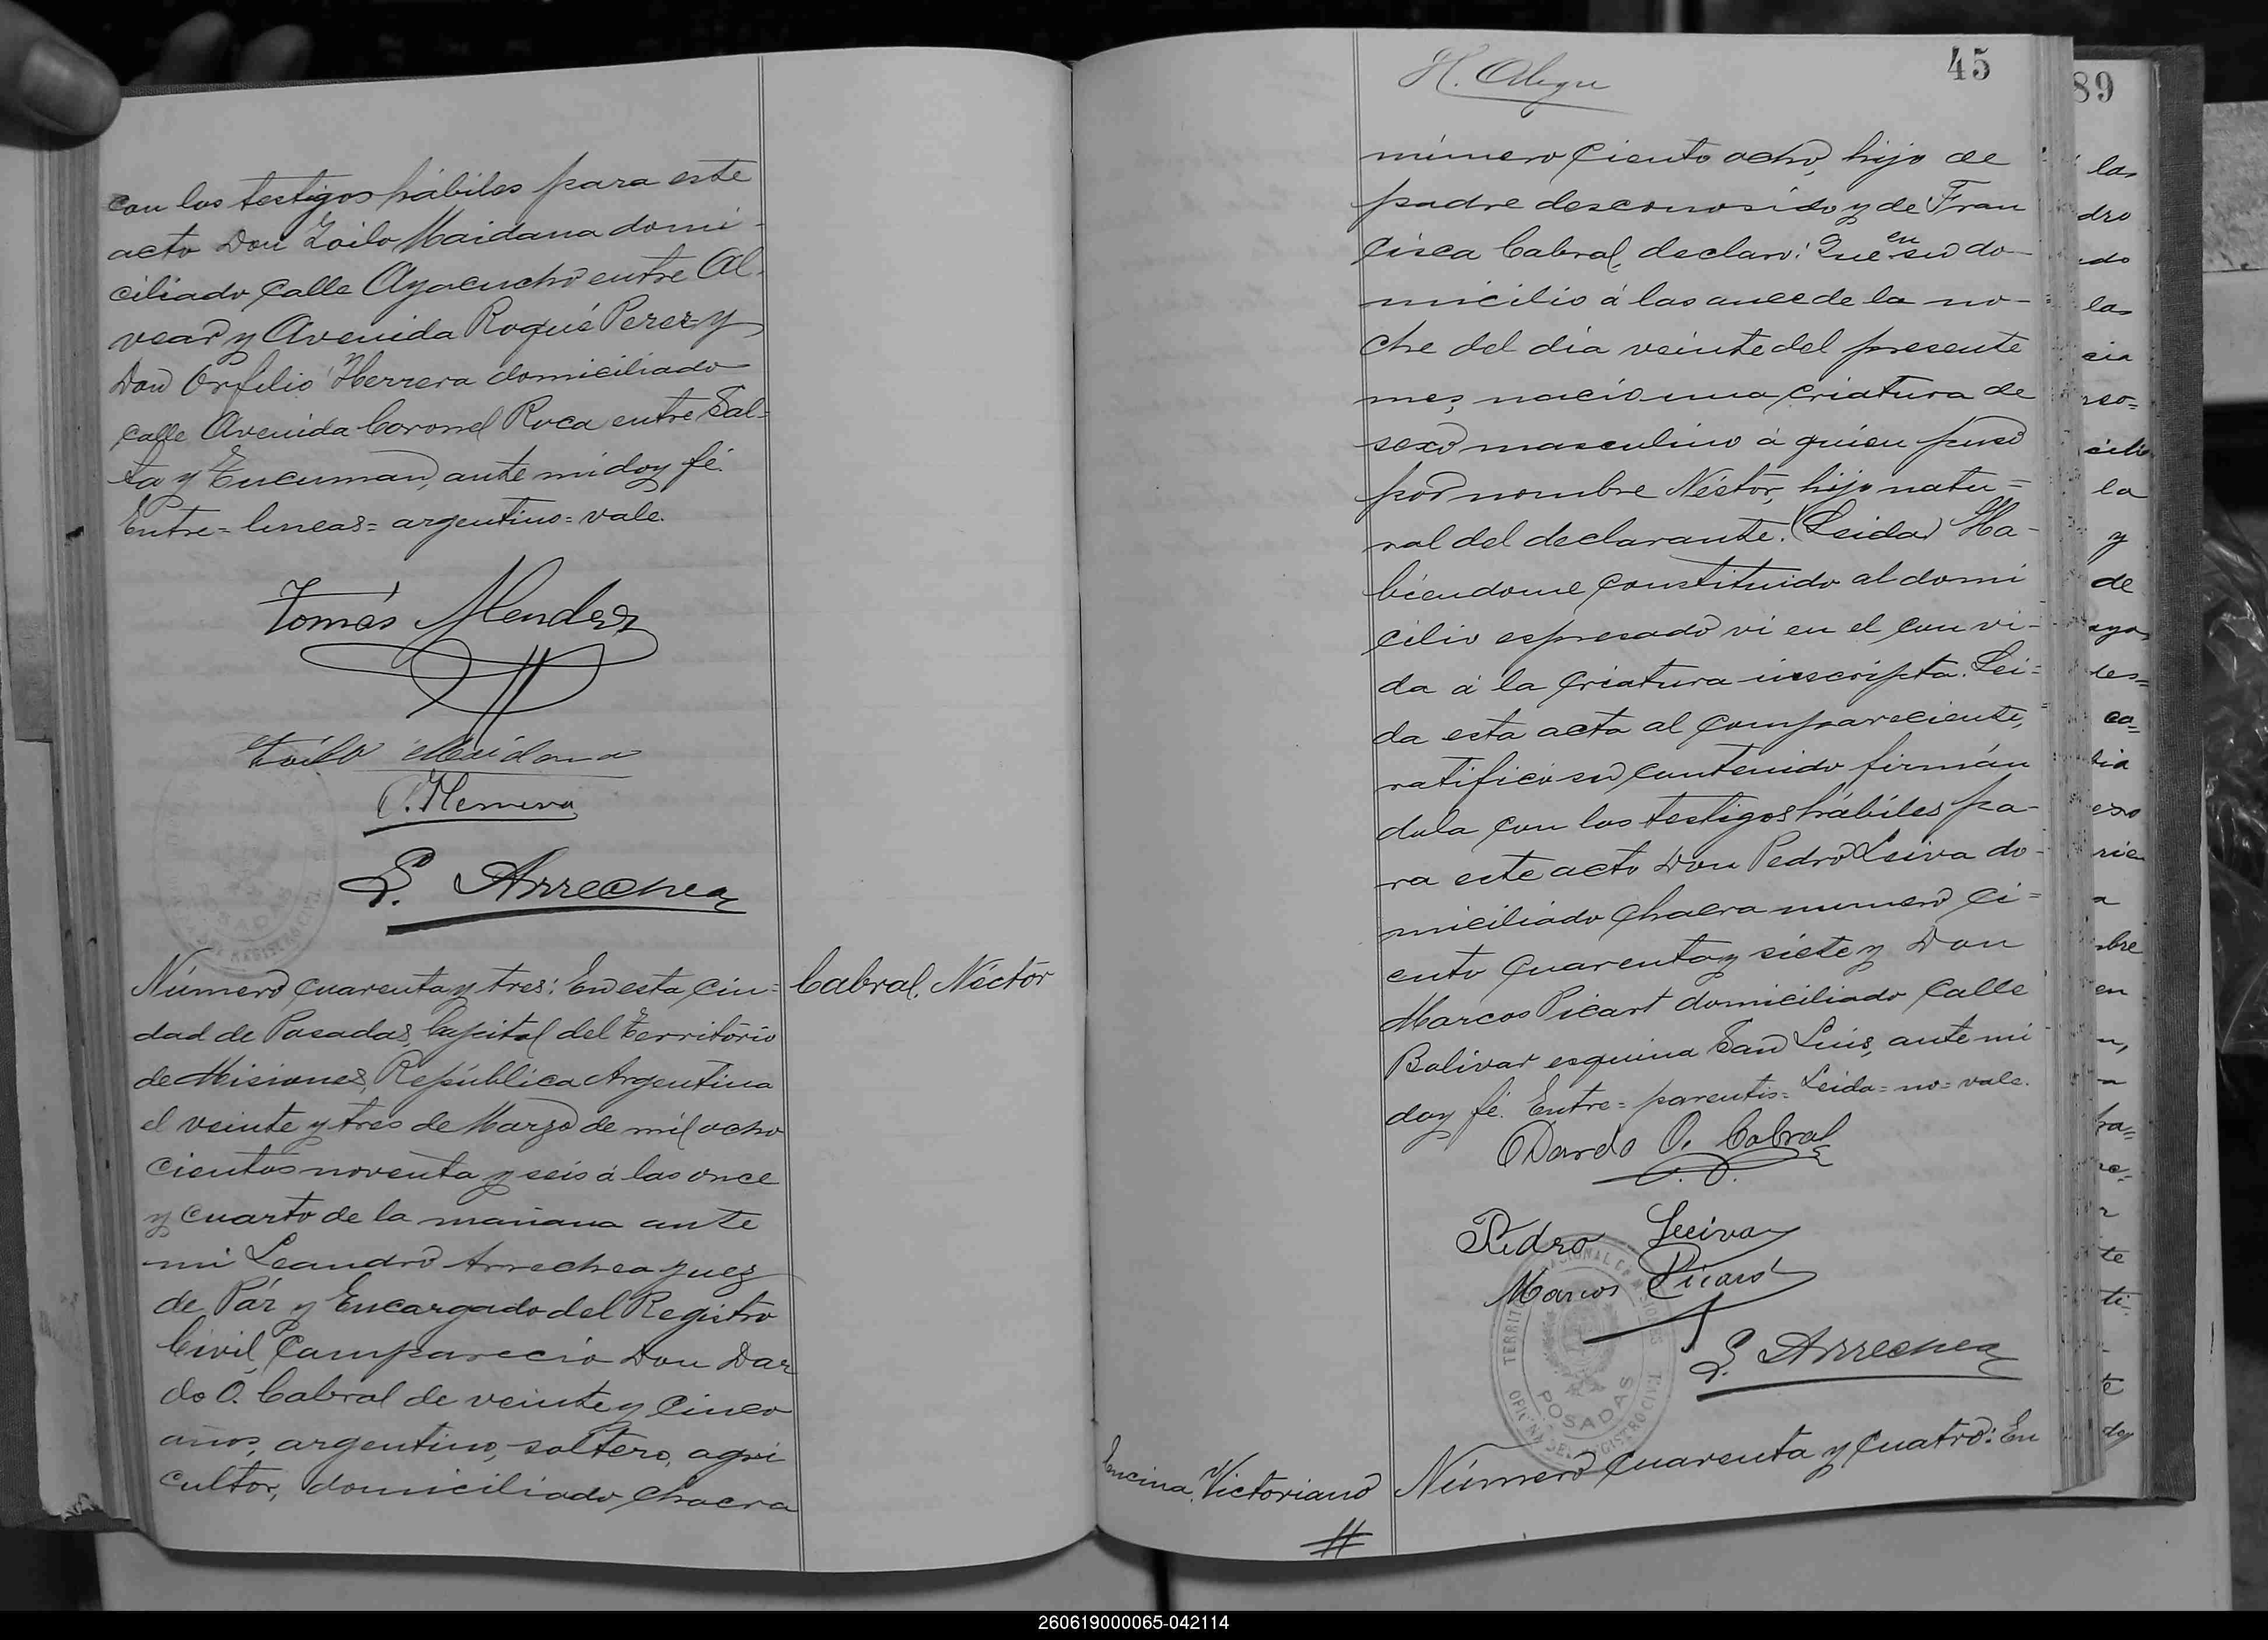 con los testigos hábiles para este
acto Don Zoilo Maidana domi-
ciliado calle Ayacucho entre Al-
vear y Avenida Roque Perez y
Don Orfilio Herrera domiciliado
calle Avenida Coronel Roca entre Sal=
ta y Tucuman, ante mi doy fé.
Entre=lineas=argentino=vale.
Tomás Mendez
Zoilo Maidana
O. Herrera
L. Arrechea
Número cuarenta y tres: En esta ciu=
dad de Posadas, Capital del Territorio
de Misiones, República Argentina
el veinte y tres de Marzo de mil ocho
cientos noventa y seis á las once
y cuarto de la mañana ante
mi Leandro Arrechea Juez
de Páz y Encargado del Registro
Civil, Compareció Don Dar
do O. Cabral de veinte y cinco
años, argentino, soltero, agri
cultor, domiciliado chacra
Cabral, Néctor
45
número ciento ocho, hijo de
padre desconosido y de Fran
cisca Cabral, declaro: Que en su do-
micilio á las once de la no-
che del dia veinte del presente
mes, nacio una criatura de
sexo masculino á quien puso
por nombre Néstor, hijo natu=
ral del declarante. (Leida) Ha-
biendome constituido al domi
cilio espresado vi en el con vi-
da á la criatura inscripta. Lei=
da esta acta al compareciente,
ratificó su contenido firmán
dola con los testigos hábiles pa-
ra este acto Don Pedro Leiva do-
miciliado chacra numero ci=
ento cuarenta y siete y Don
Marcos Picart domiciliado calle
Bolivar esquina San Luis, ante mi
doy fé. Entre=parentis=Leida=no=vale.
Dardo O. Cabral
Pedro Leeiva
Marcos Picart
L. Arrechea
POSADAS
Encina, Victoriano
Número cuarenta y cuatro: En
89
las
dro
do
las
cia
la
y
de
260619000065-042114